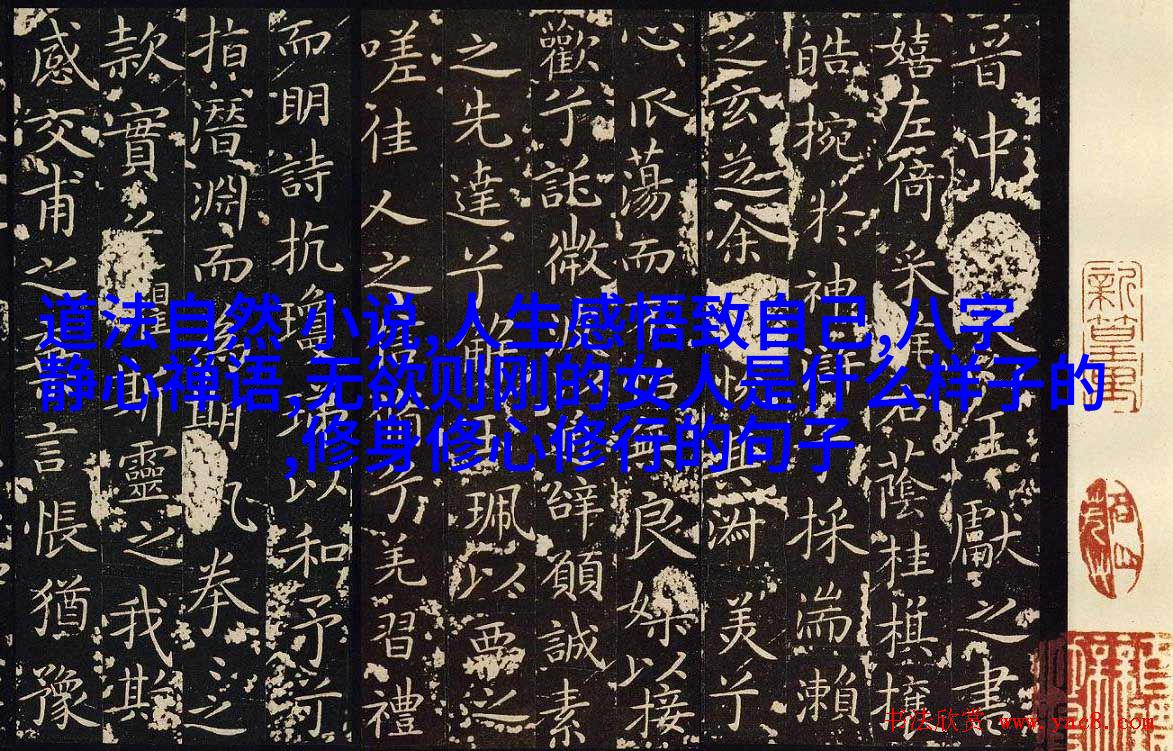 道法自然 小说,人生感悟致自己,八字
静心禅语,无欲则刚的女人是什么样子的
,修身修心修行的句子
晋中王獻之書
嬉左倚采旄蔭桂旗攘
皓捥於神採湍瀨
之玄芝余悅其淑美兮
心瓜蕩而無良媒以接
歡兮託微辭願誠素
之先達兮解玉珮以要之
嗟佳人之信兮羌習禮
而明詩抗瓊以和予兮
指潛淵而期拳之
款實懼斯靈之我欺
感交甫之棄言悵猶豫
书法欣赏 www.yac8.com